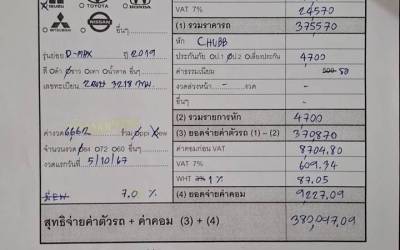 ISUZU TOYOTA HONDA
MITSUBISHI NISSAN อื่นๆ
รุ่นย่อย D-MAX ปี 2019
สี ดำ ขาว เทา น้ำตาล อื่นๆ
เลขทะเบียน
ค่างวด 6662
จำนวนงวด 84 72 60 อื่นๆ
งวดแรกวันที่ 5/10/67
7.0 %
VAT 7% 24570
(1) รวมราคารถ 375570
หัก CHUBB
ประกันภัย ป.1 ป.2 เลี่ยงประกัน 4700
ค่าธรรมเนียม 50
งวดล่วงหน้า - งวด -
อื่นๆ
(2) รวมรายการหัก 4700
(3) ยอดจ่ายค่าตัวรถ (1) - (2) 370870
ค่าคอมก่อน VAT 8704.80
VAT 7% 609.34
WHT 1% 87.05
(4) ยอดจ่ายค่าคอม 9227.09
สุทธิจ่ายค่าตัวรถ + ค่าคอม (3) + (4) 380,097.09